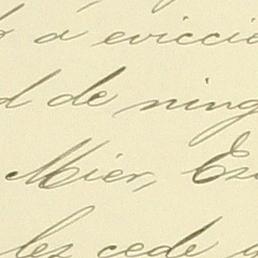 a eviccio
d de ning
Mier, Ex
les cede